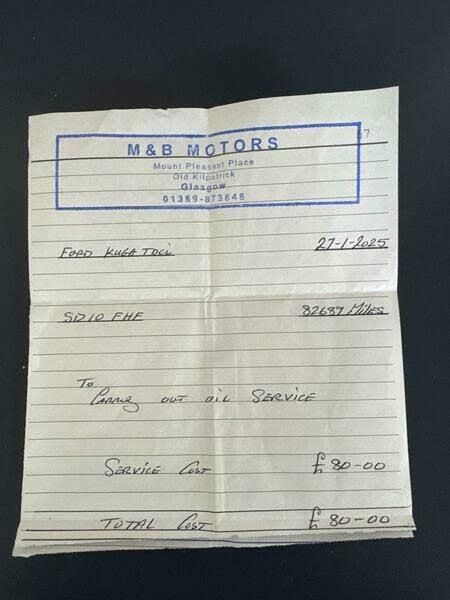 67
M&B MOTORS
Mount Pleasant Place
Old Kilpatrick
Glasgow
01389-873848
FORD KUGA TDCi 27-1-2025
SD10 FHF 82689 MILES
To
Carring out oil SERVICE
SERVICE COST £80-00
TOTAL COST £80-00